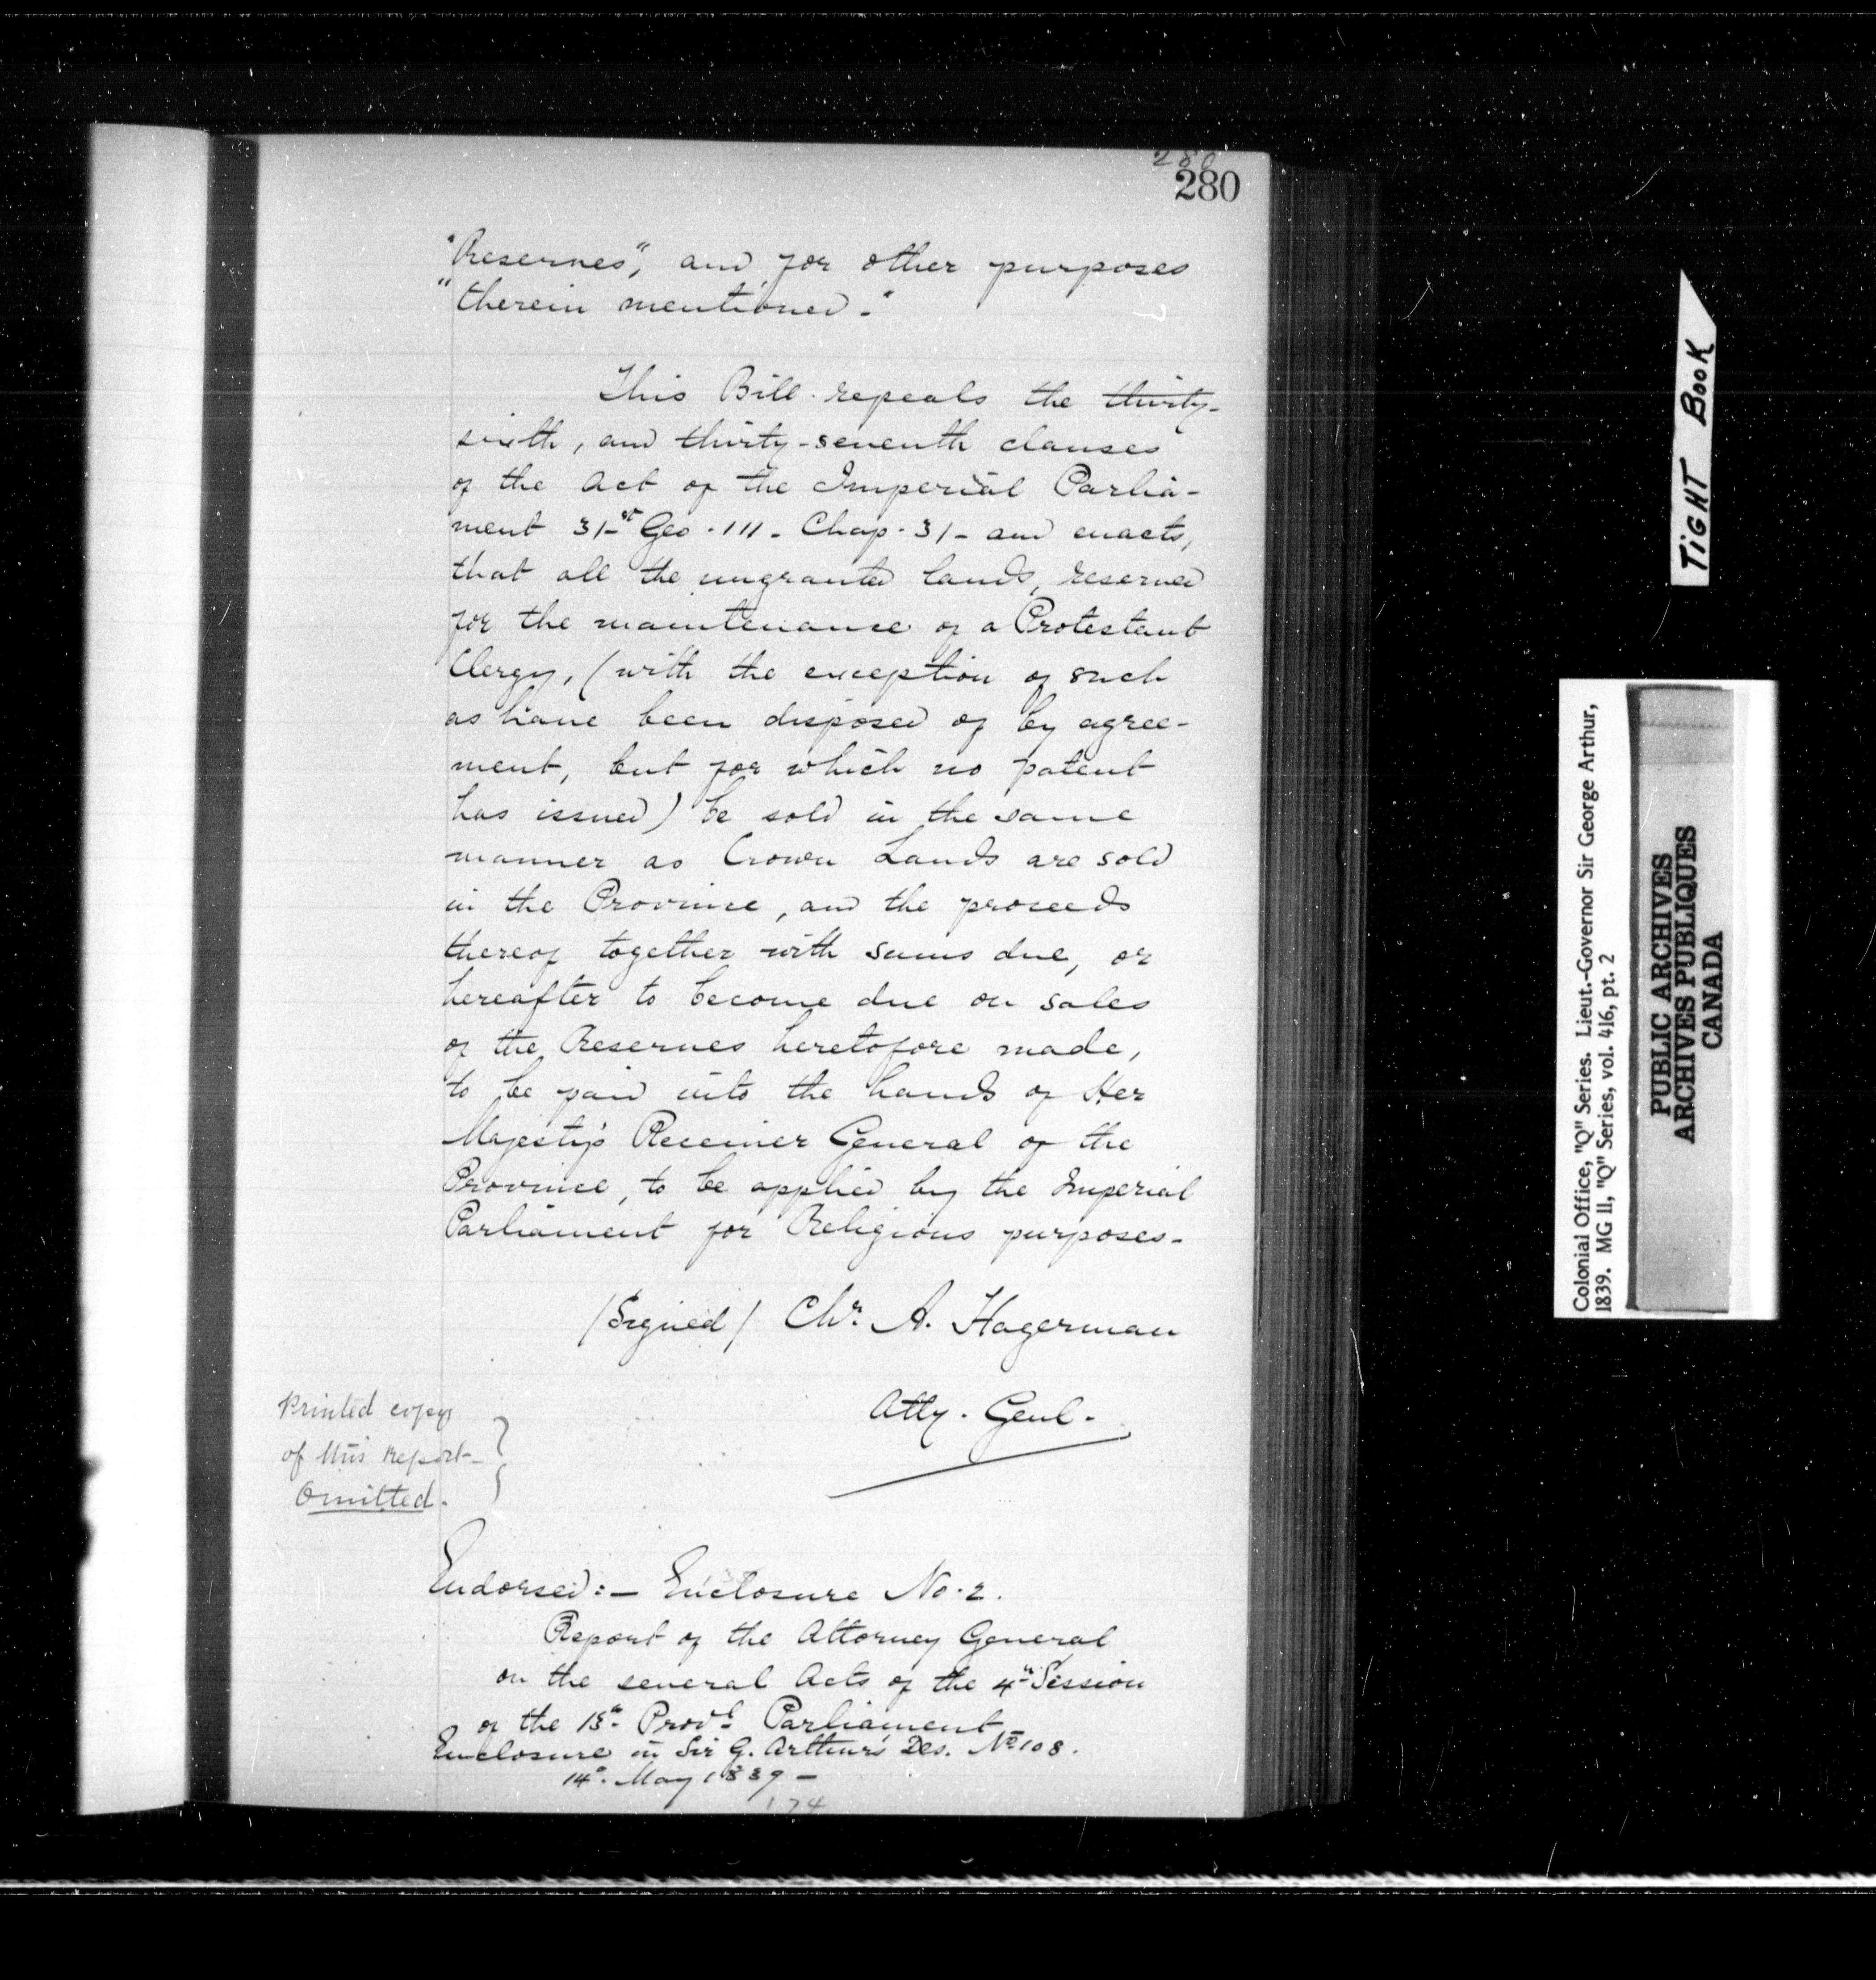 280
280
"Reserves", and for other purposes
"therein mentioned."
This Bill repeals the thirty-
sixth, and thirty-seventh clauses
of the Act of the Imperial Parlia-
ment 31st Geo. III. Chap. 31 - and enacts,
that all the ungranted lands, reserved
for the maintenance of a Protestant
Clergy, (with the exception of such
as have been disposed of by agree-
ment, but for which no patent
has issued) be sold in the same
manner as Crown Lands are sold
in the Province, and the proceeds
thereof together with sums due, or
hereafter to become due on sales
of the Reserves heretofore made,
to be paid into the hands of Her
Majesty's Receiver General of the
Province, to be applied by the Imperial
Parliament for Religious purposes -
(Signed) Chr. A. Hagerman
Atty. Genl.
Printed copy
of this report
Omitted.
Endorsed: - Enclosure No. 2.
Report of the Attorney General
on the several Acts of the 4th Session
of the 13th Provl. Parliament
Enclosure in Sir G. Arthur's Des. No 108.
14th. May 1839 -
174
TIGHT BOOK
Colonial Office, "Q" Series. Lieut.-Governor Sir George Arthur,
1839. MG 11, "Q" Series, vol. 416, pt. 2
PUBLIC ARCHIVES
ARCHIVES PUBLIQUES
CANADA